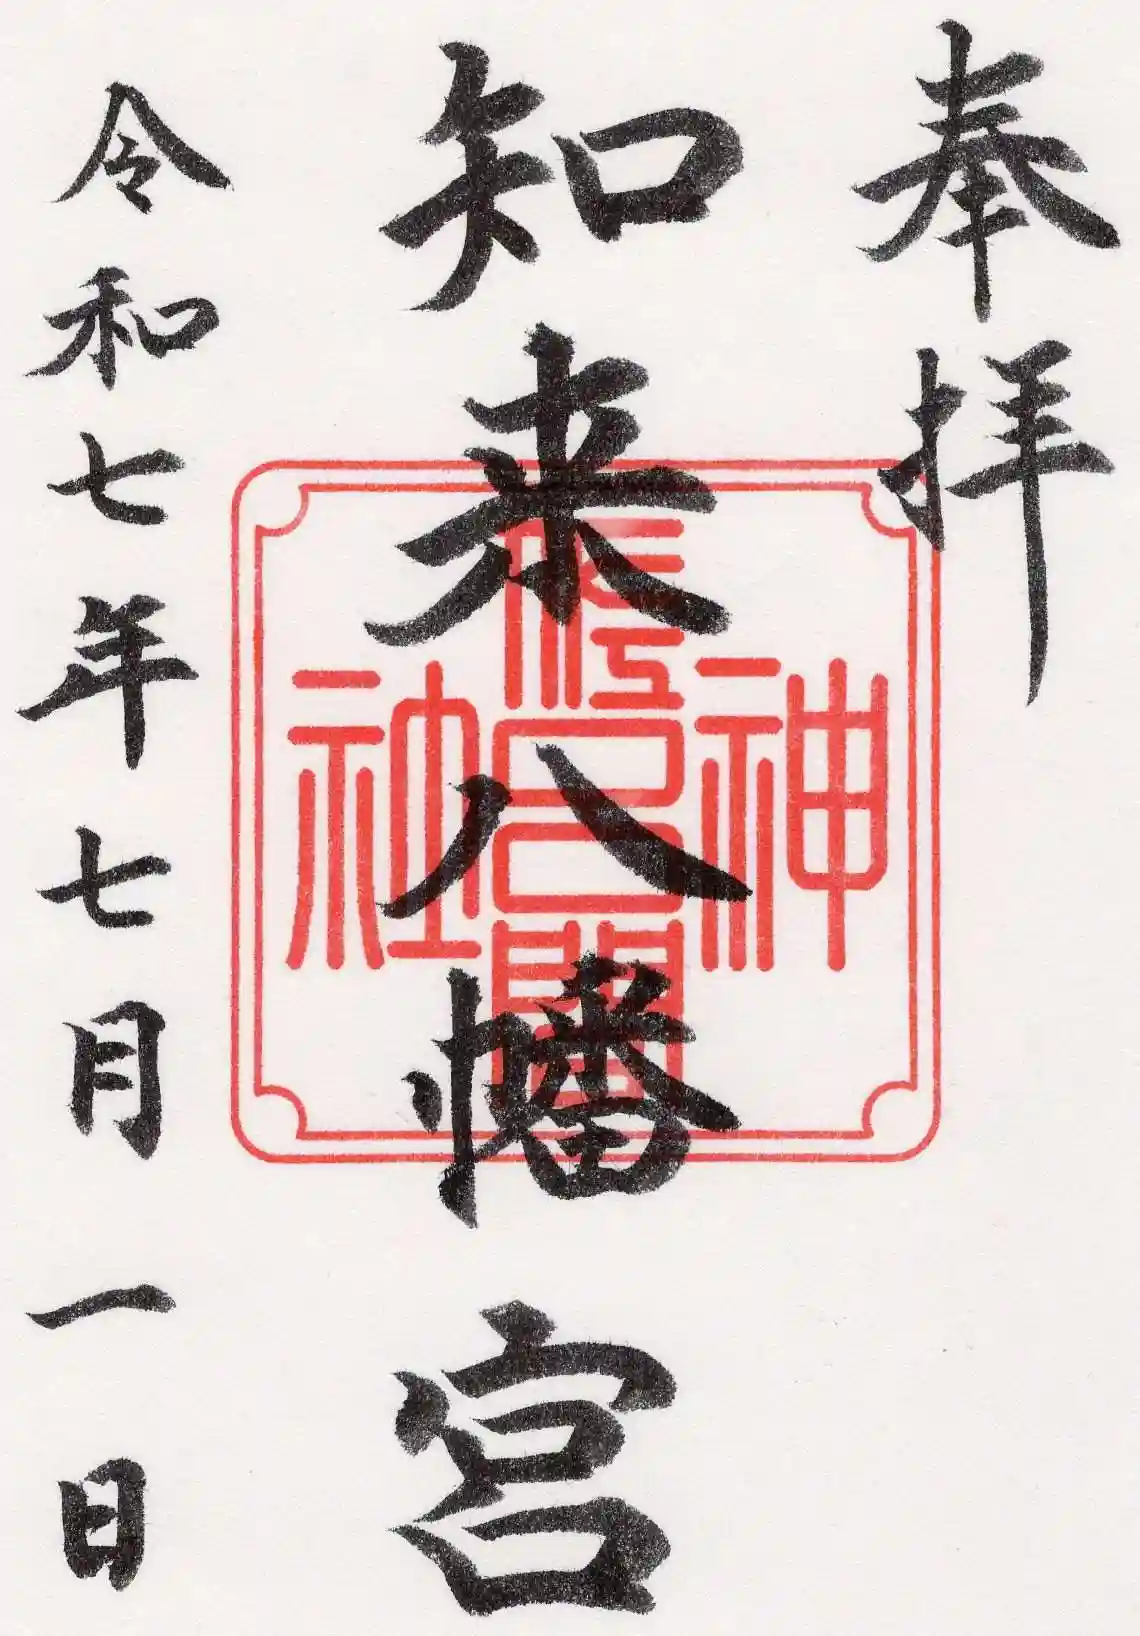 奉拝
知来八幡宮
令和七年七月一日
神
社